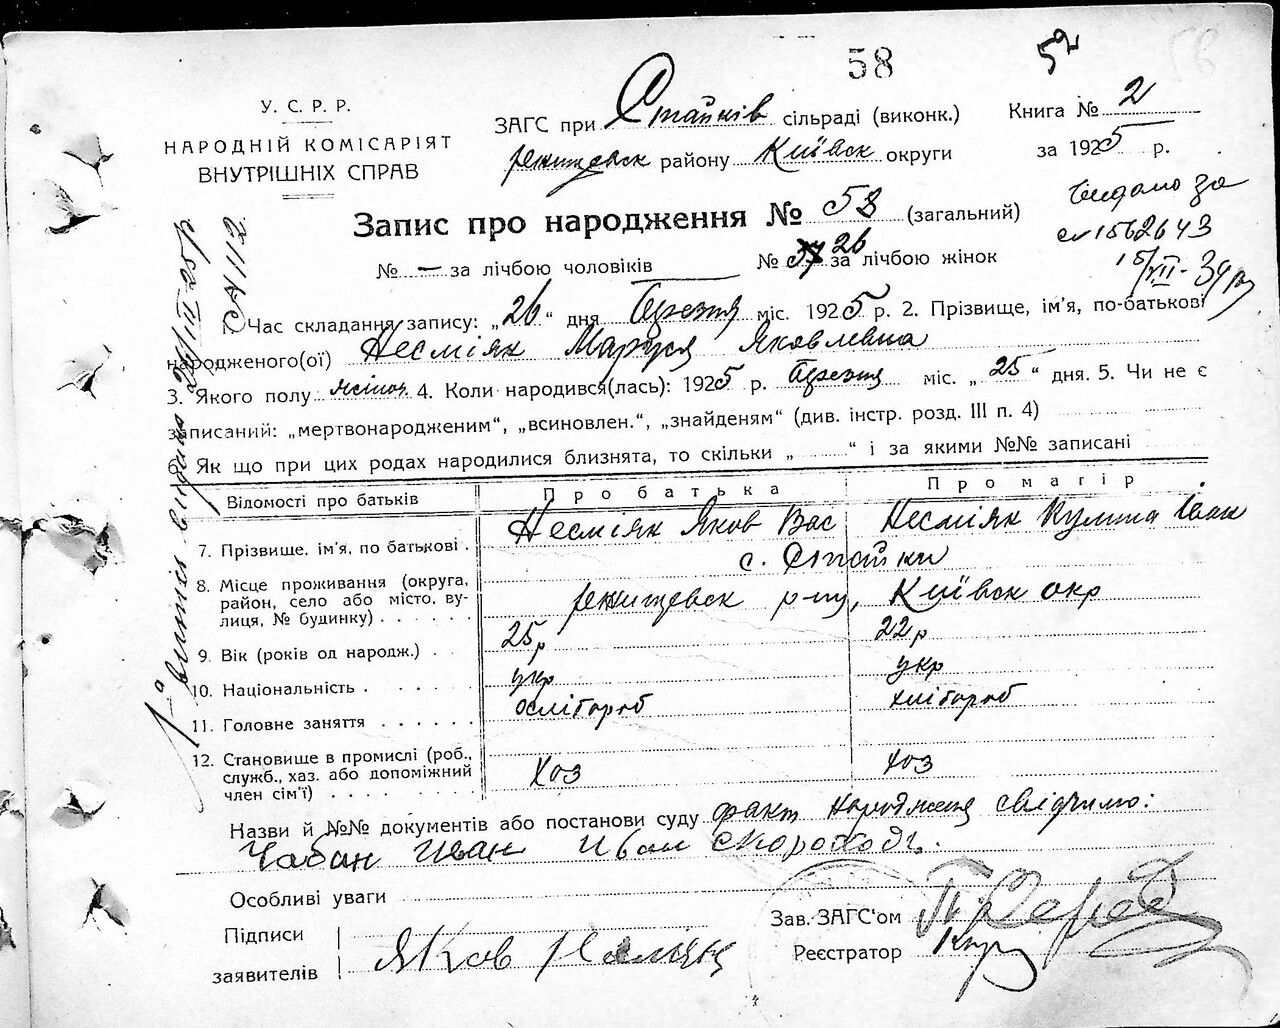 58
52
У. С. Р. Р.
НАРОДНІЙ КОМІСАРІЯТ
ВНУТРІШНІХ СПРАВ
ЗАГС при Стайків сільраді (виконк.)
Ржищевск району Київск округи
Книга № 2
за 1925 р.
Запис про народження № 58 (загальний)
№ — за лічбою чоловіків № 26 за лічбою жінок
Видано за
1562643
15/VII-34
1. Час складання запису: „26“ дня Березня міс. 1925 р. 2. Прізвище, ім'я, по-батькові
народженого(ої) Несміян Маруся Яковлевна
3. Якого полу жіноч. 4. Коли народився(лась): 1925 р. Березня міс. „25“ дня. 5. Чи не є
записаний: „мертвонародженим“, „всиновлен.“, „знайденям“ (див. інстр. розд. III п. 4)
6. Як що при цих родах народилися близнята, то скільки „ “ і за якими №№ записані
Відомості про батьків
Про батька
Про матір
7. Прізвище, ім'я, по батькові .
Несміян Яков Вас
Несміян Кулина Іван
8. Місце проживання (округа,
район, село або місто, ву-
лиця, № будинку) . . . . .
с. Стайки
Ржищевск р-ну, Київск окр
9. Вік (років од народж.) . .
25р
22р
10. Національність . . . . . .
укр
укр
11. Головне заняття . . . . . .
хлібороб
хлібороб
12. Становище в промислі (роб.,
служб., хаз. або допоміжний
член сім'ї) . . . . . . . .
хоз
хоз
Назви й №№ документів або постанови суду факт народження свідчимо:
Чабан Иван Иван Скороход
Особливі уваги
Підписи
заявителів
Яков Несміян
Зав. ЗАГС'ом
Реєстратор